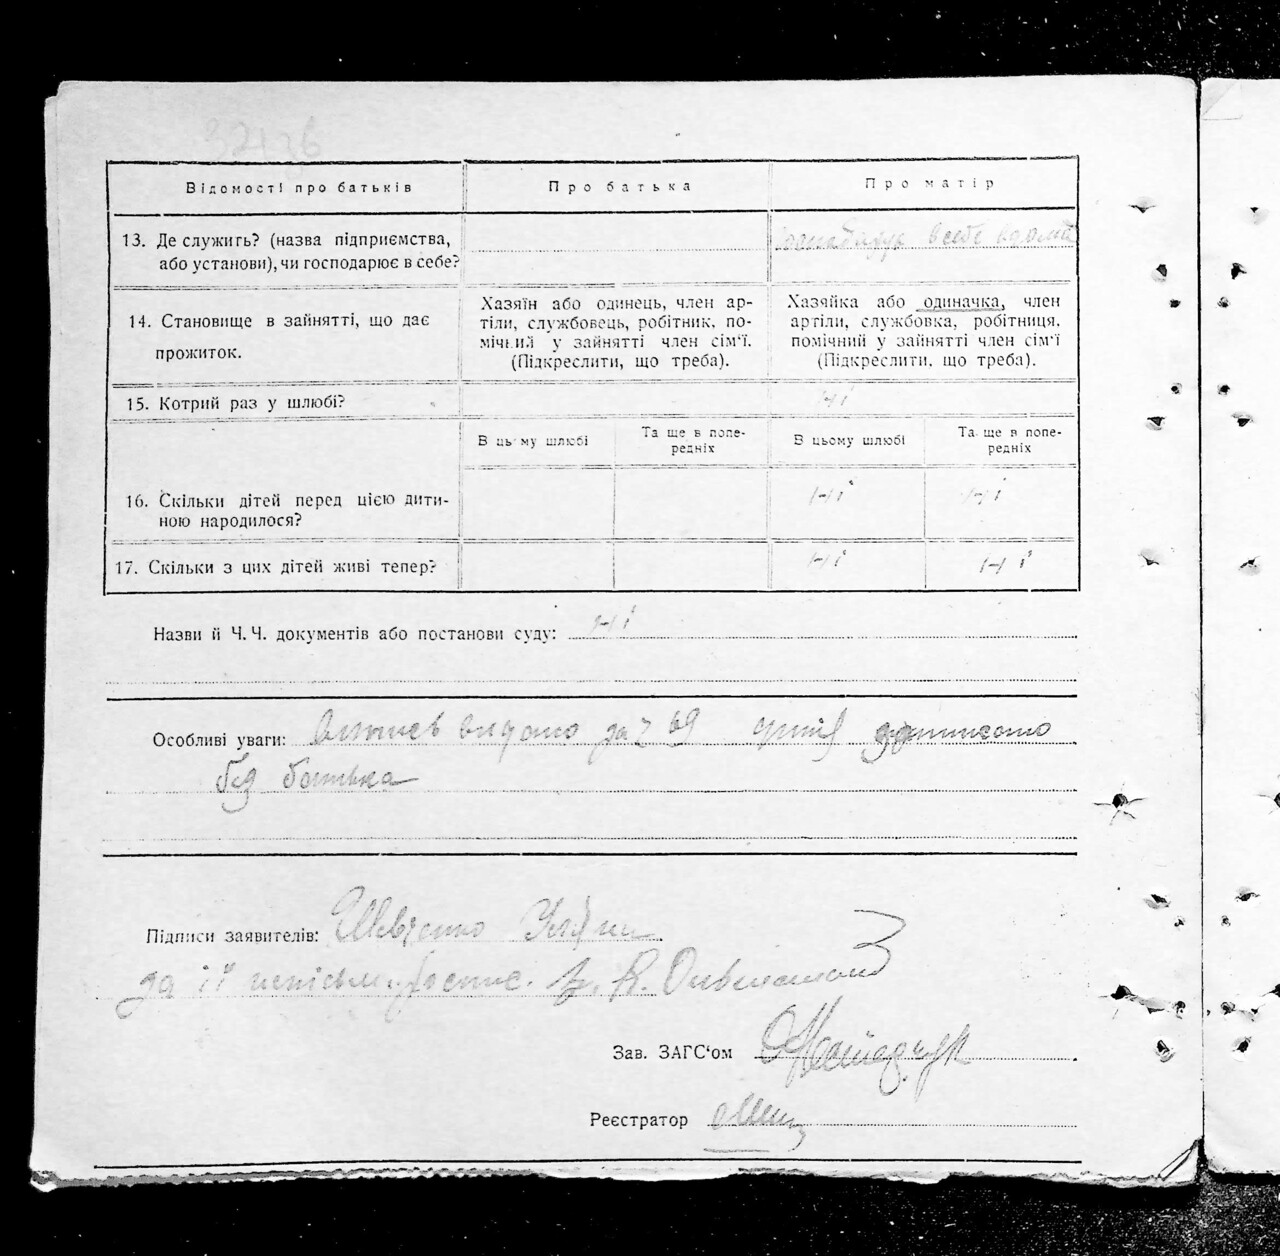 32136
Відомості про батьків
Про батька
Про матір
13. Де служить? (назва підприємства,
або установи), чи господарює в себе?
в себе вдома
14. Становище в зайнятті, що дає
прожиток.
Хазяїн або одинець, член ар-
тіли, службовець, робітник, по-
мічний у зайнятті член сім'ї.
(Підкреслити, що треба).
Хазяйка або одиначка, член
артіли, службовка, робітниця,
помічний у зайнятті член сім'ї
(Підкреслити, що треба).
15. Котрий раз у шлюбі?
ні
В цьому шлюбі
Та ще в попе-
редніх
В цьому шлюбі
Та ще в попе-
редніх
16. Скільки дітей перед цією дити-
ною народилося?
ні
ні
17. Скільки з цих дітей живі тепер?
ні
ні
Назви й Ч. Ч. документів або постанови суду: ні
Особливі уваги: видано за ч 69
без батька
Підписи заявителів: Уляна
за її
Зав. ЗАГС'ом
Реєстратор